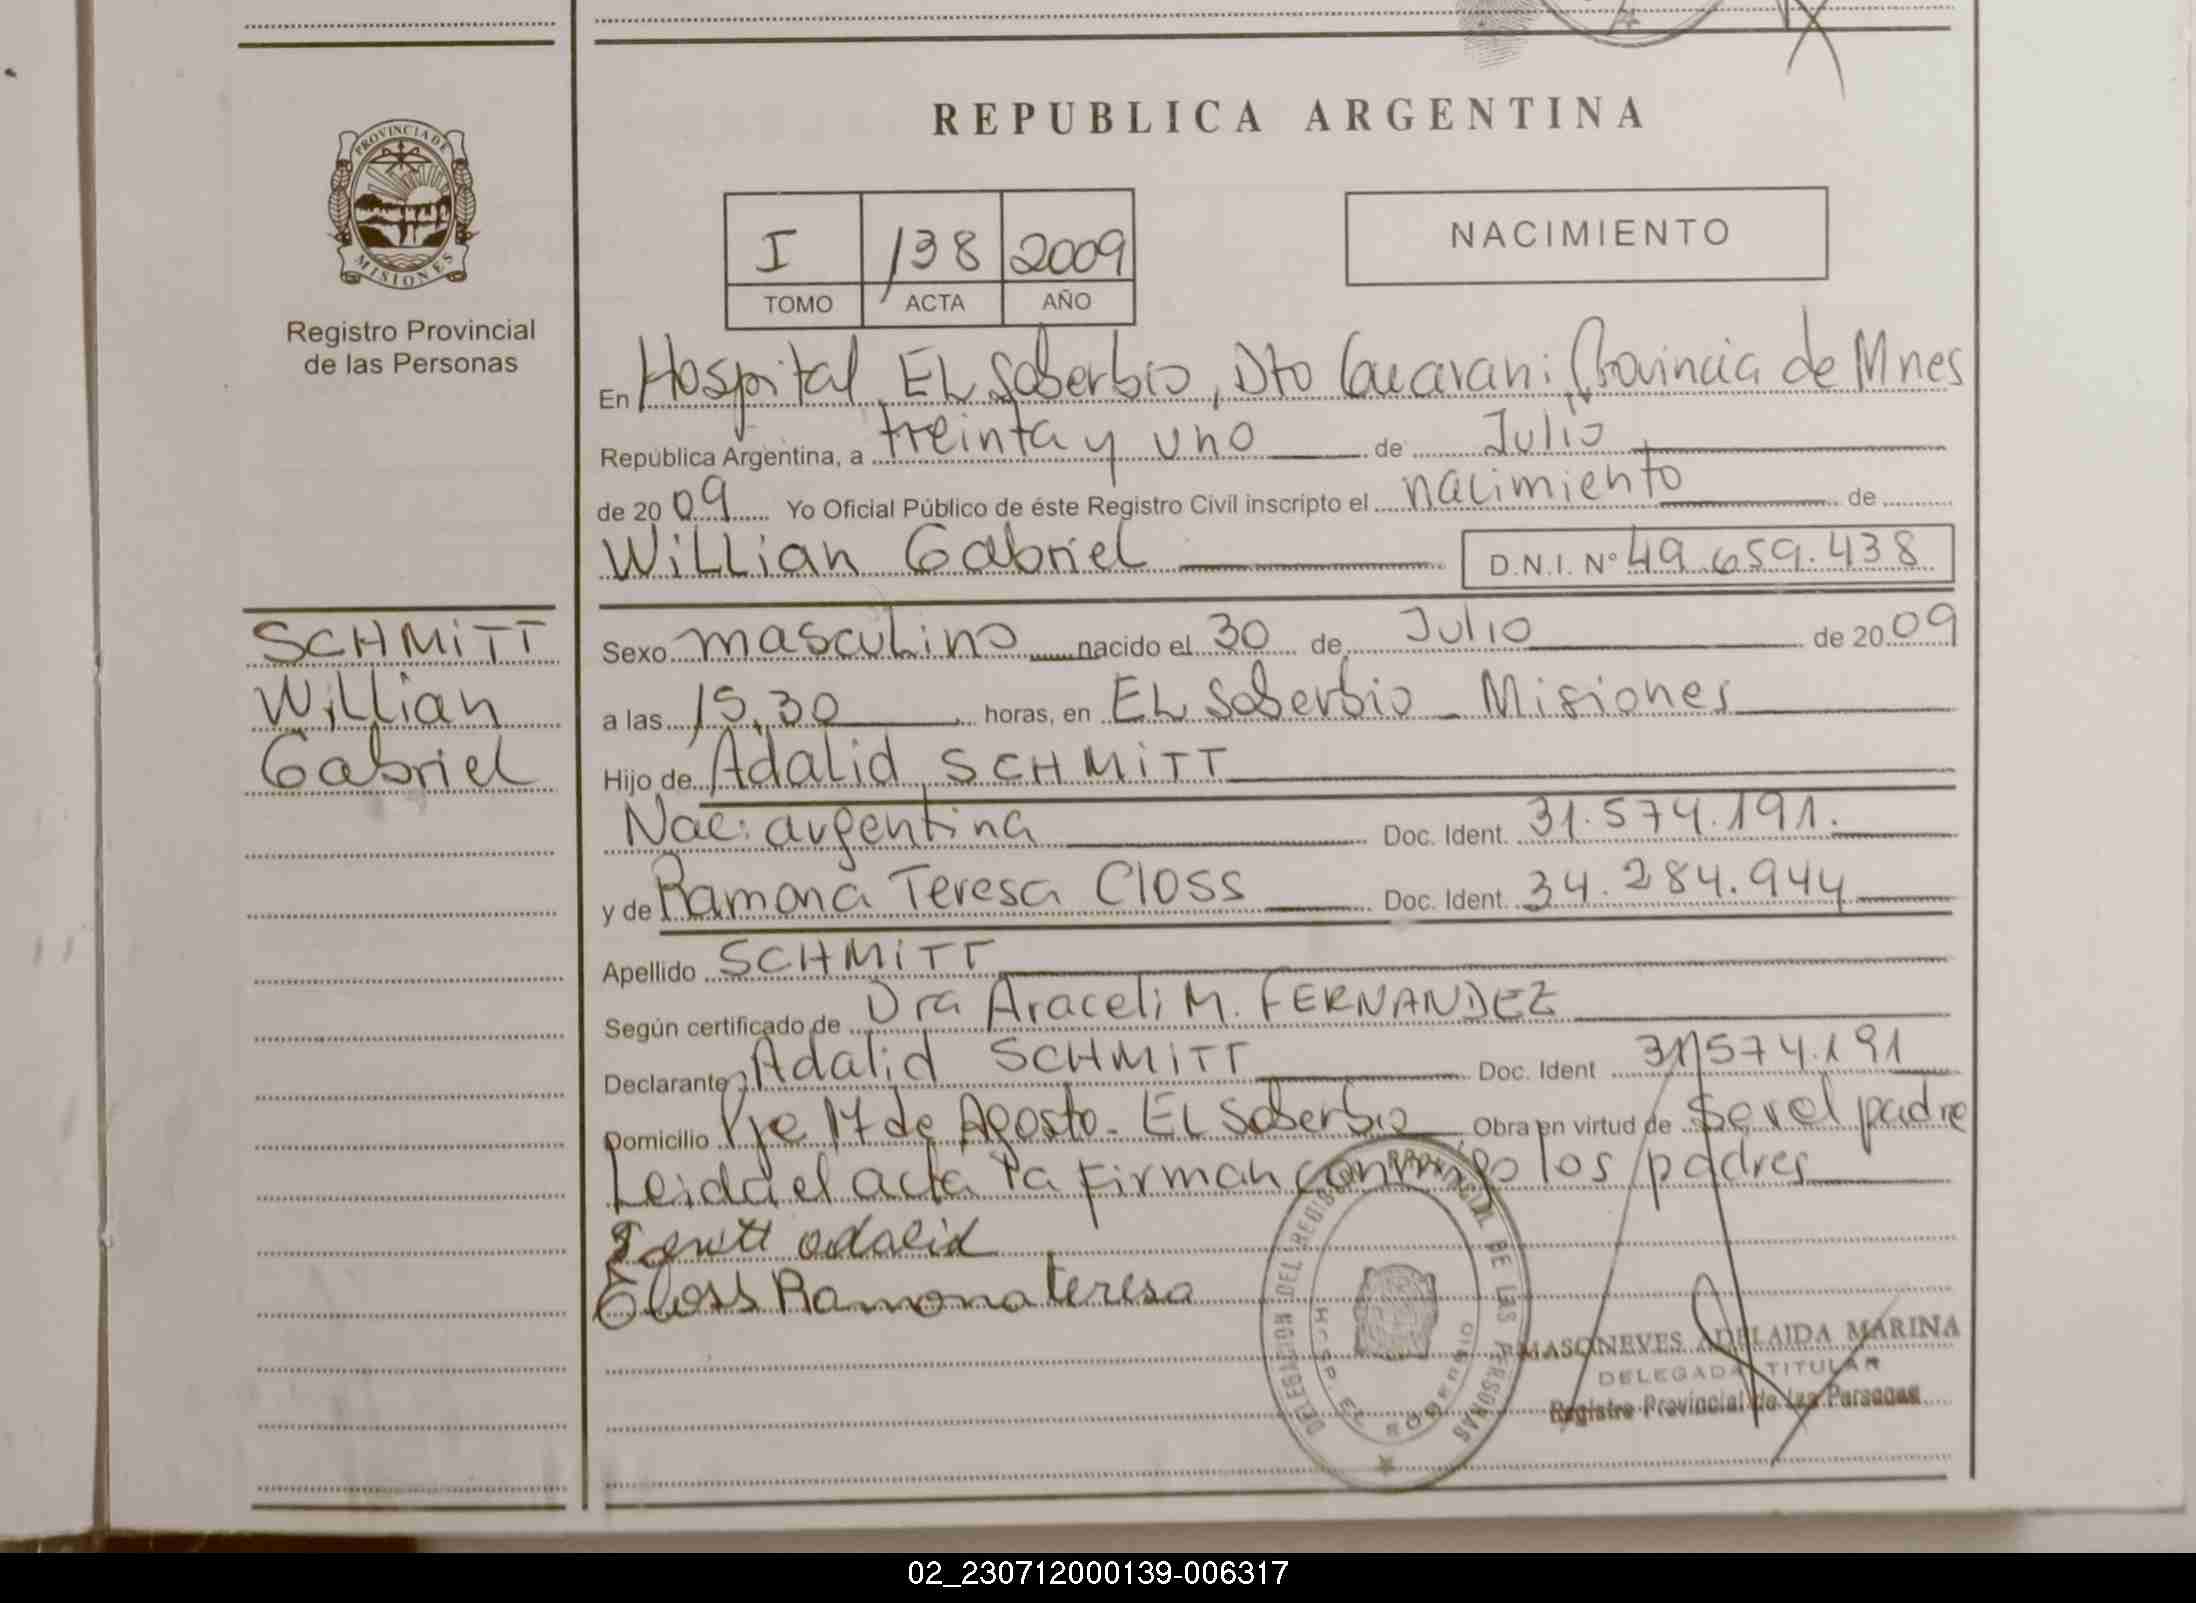 REPUBLICA ARGENTINA
PROVINCIA DE
MISIONES
Registro Provincial
de las Personas
I 138 2009
TOMO ACTA AÑO
NACIMIENTO
En Hospital EL Soberbio, Dto Guarani Provincia de Mnes
República Argentina, a treinta y uno de Julio
de 2009 Yo Oficial Público de éste Registro Civil inscripto el nacimiento de
WiLLian Gabriel D.N.I. Nº 49.659.438
SCHMiTT
WiLLian
Gabriel
Sexo mascuLino nacido el 30 de Julio de 2009
a las 15,30 horas, en EL Soberbio - Misiones
Hijo de Adalid SCHMiTT
Nac: argentina Doc. Ident. 31.574.191.
y de Ramona Teresa Closs Doc. Ident. 34.284.944
Apellido SCHMiTT
Según certificado de Dra Araceli M. FERNANDEZ
Declarante Adalid SCHMiTT Doc. Ident 31574.191
Domicilio Pje 17 de Agosto - EL Soberbio Obra en virtud de Ser el padre
Leida el acta la firman conmigo los padres
adalid
Closs Ramona teresa
DELEGACION DEL REGISTRO PROVINCIAL DE LAS PERSONAS
HOSP. EL SOBERBIO
MASONEVES ADELAIDA MARINA
DELEGADA TITULAR
Registro Provincial de Las Personas
02_230712000139-006317